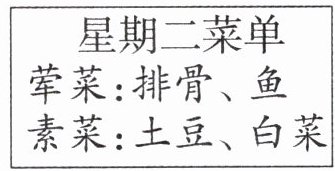 星期二菜单
荤菜:排骨、鱼
素菜:土豆、白菜